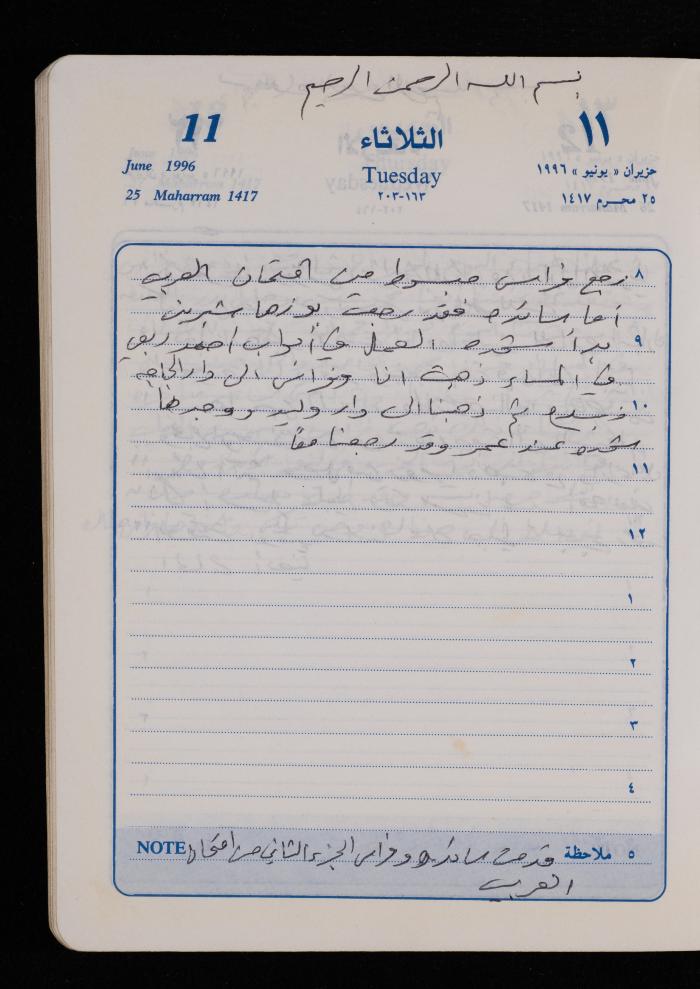 بسم الله الرحمن الرحيم
11 الثلاثاء ١١
June 1996 Tuesday حزيران « يونيو » ١٩٩٦
25 Maharram 1417 ٢٠٣-١٦٣ ٢٥ محرم ١٤١٧
٨ رجع فراس مبسوط من امتحان العربي
أما ساندره فقد رجعت
٩ بدأ العمل في أبواب
في المساء ذهبت انا وفراس الى دار الحاجه
١٠ ثم ذهبنا الى دار وليد ووجدنا
عند عمر وقد رجعنا معًا
١١
١٢
١
٢
٣
٤
٥ ملاحظة قدمت ساندره وفراس الجزء الثاني من امتحان NOTE
العربي